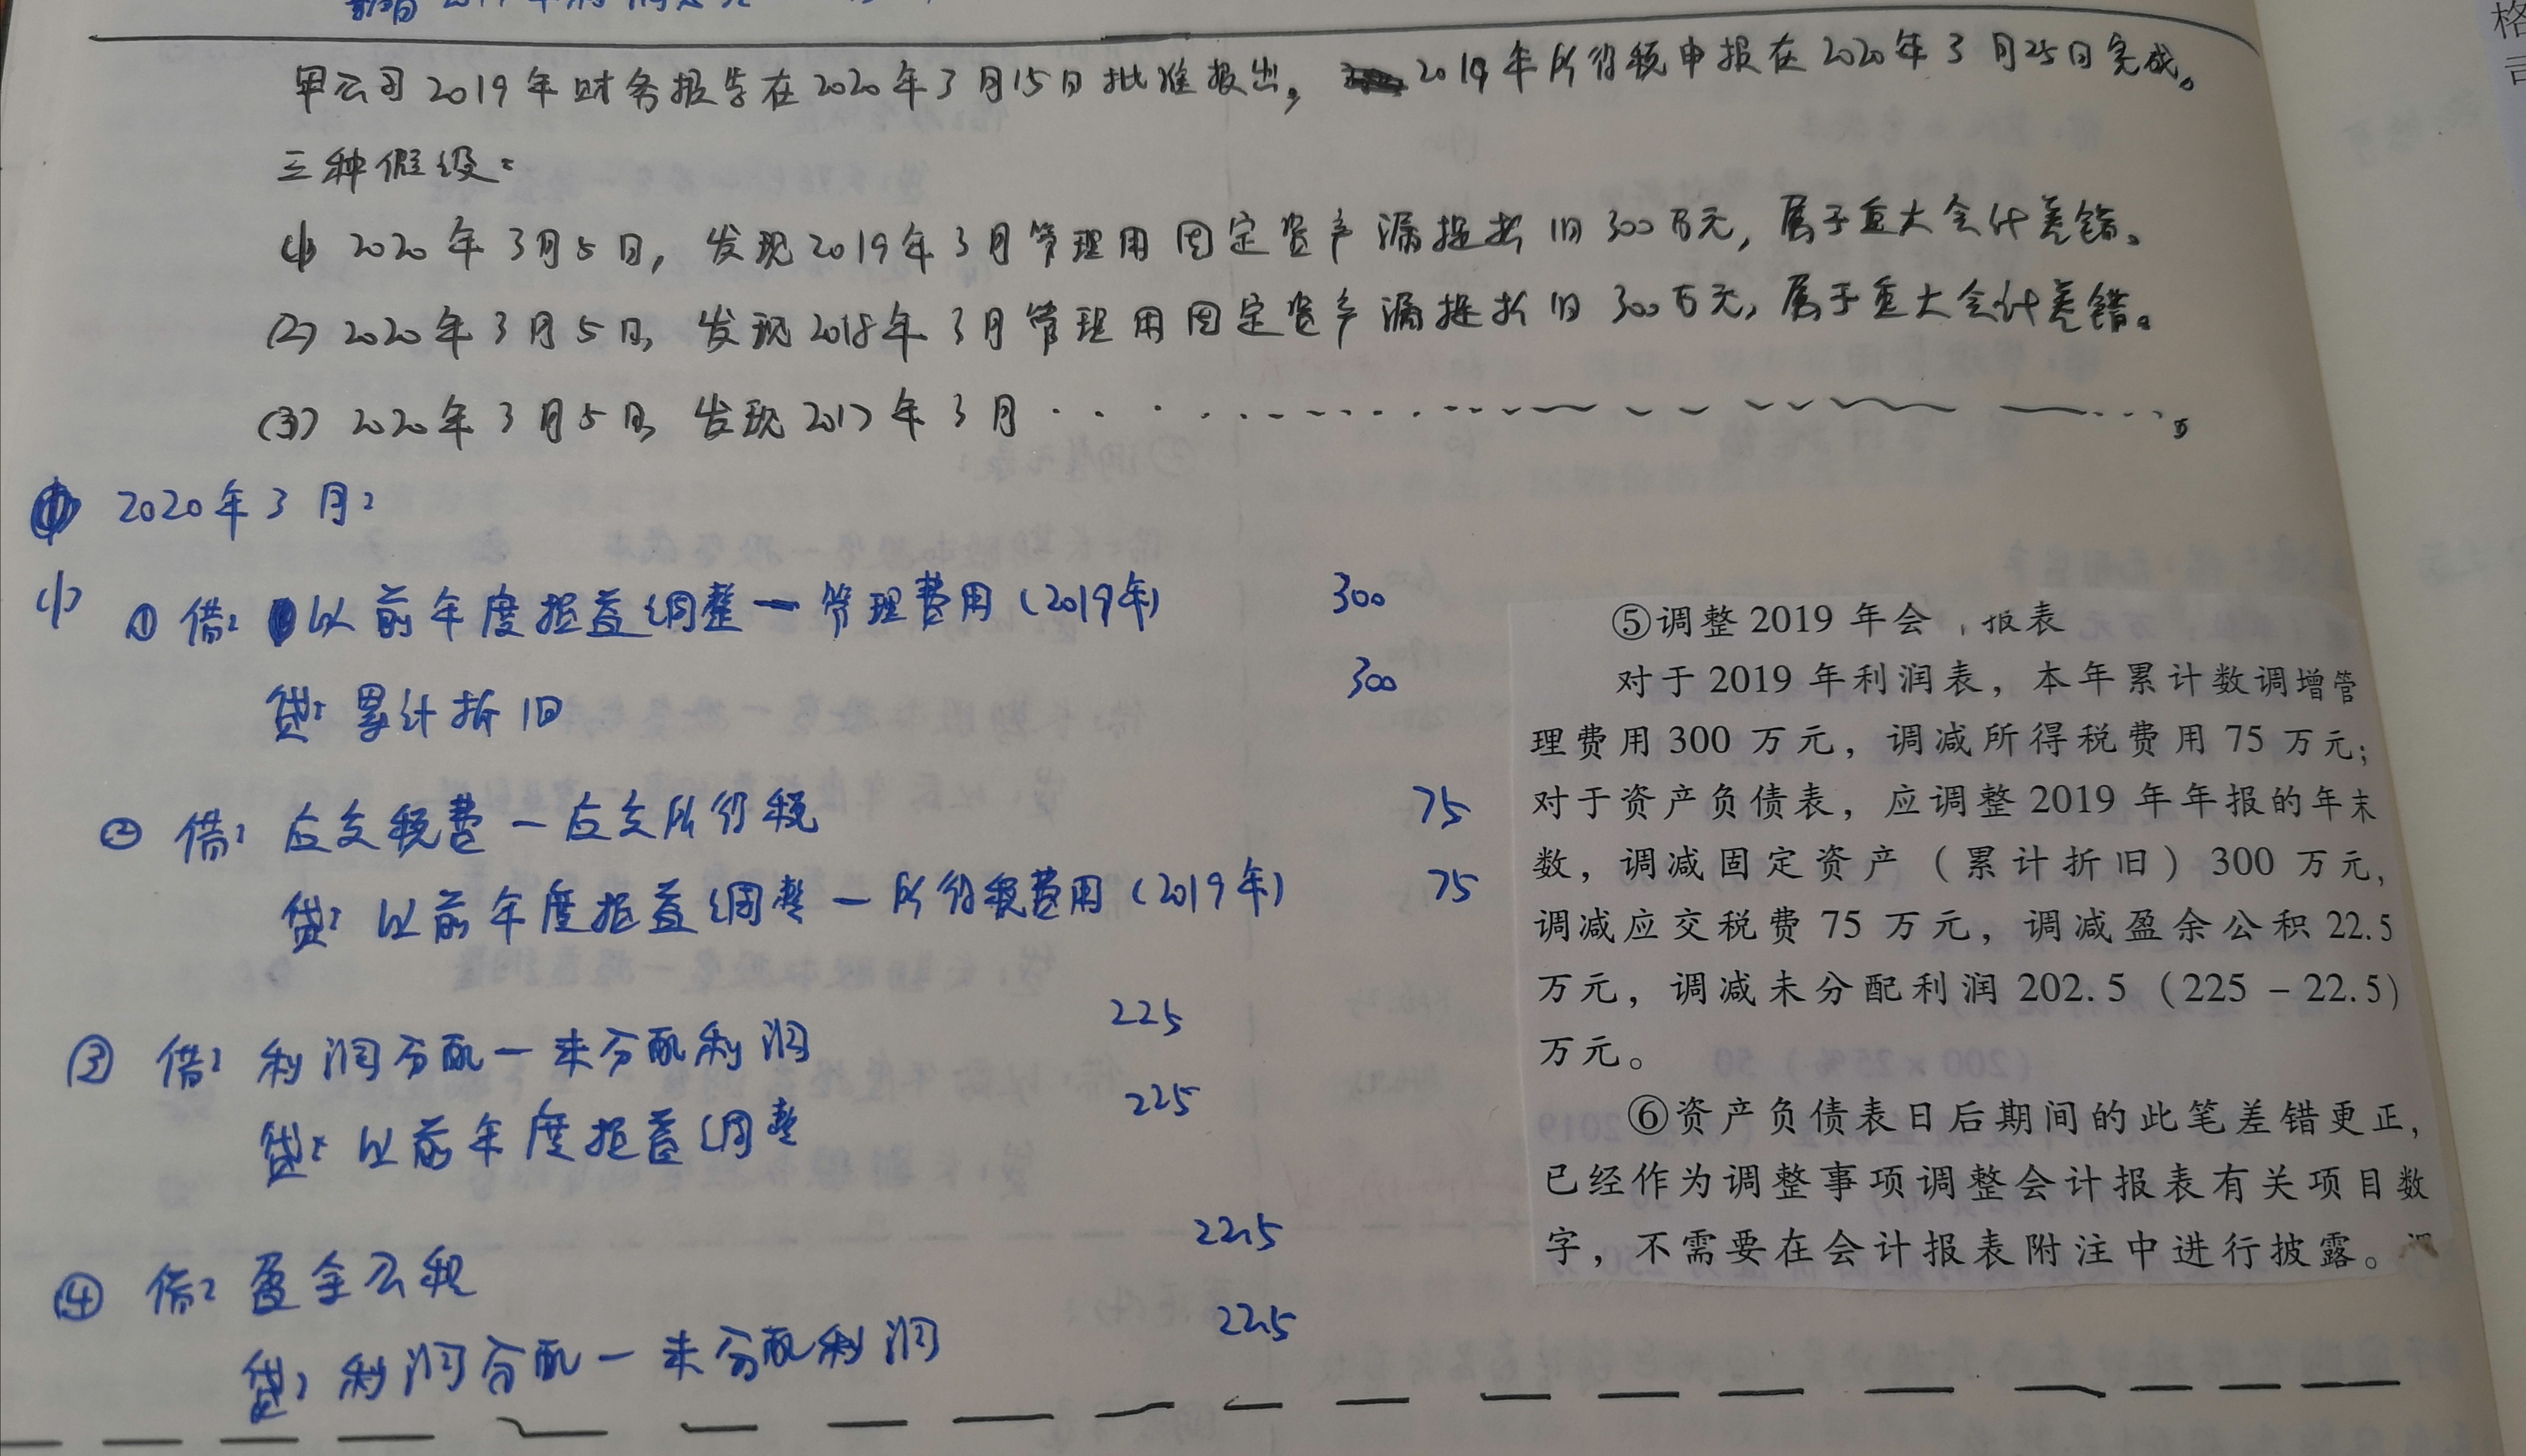 甲公司2019年财务报告在2020年3月15日批准报出，2019年所得税申报在2020年3月25日完成。
三种假设：
(1) 2020年3月5日，发现2019年3月管理用固定资产漏提折旧300万元，属于重大会计差错。
(2) 2020年3月5日，发现2018年3月管理用固定资产漏提折旧300万元，属于重大会计差错。
(3) 2020年3月5日，发现2017年3月……………………。
2020年3月：
(1) ①借：以前年度损益调整一管理费用（2019年） 300
贷：累计折旧 300
②借：应交税费一应交所得税 75
贷：以前年度损益调整一所得税费用（2019年） 75
③借：利润分配一未分配利润 225
贷：以前年度损益调整 225
④借：盈余公积 22.5
贷：利润分配一未分配利润 22.5
⑤调整2019年会 报表
对于2019年利润表，本年累计数调增管
理费用300万元，调减所得税费用75万元；
对于资产负债表，应调整2019年年报的年末
数，调减固定资产（累计折旧）300万元，
调减应交税费75万元，调减盈余公积22.5
万元，调减未分配利润202.5（225－22.5）
万元。
⑥资产负债表日后期间的此笔差错更正，
已经作为调整事项调整会计报表有关项目数
字，不需要在会计报表附注中进行披露。
格
司